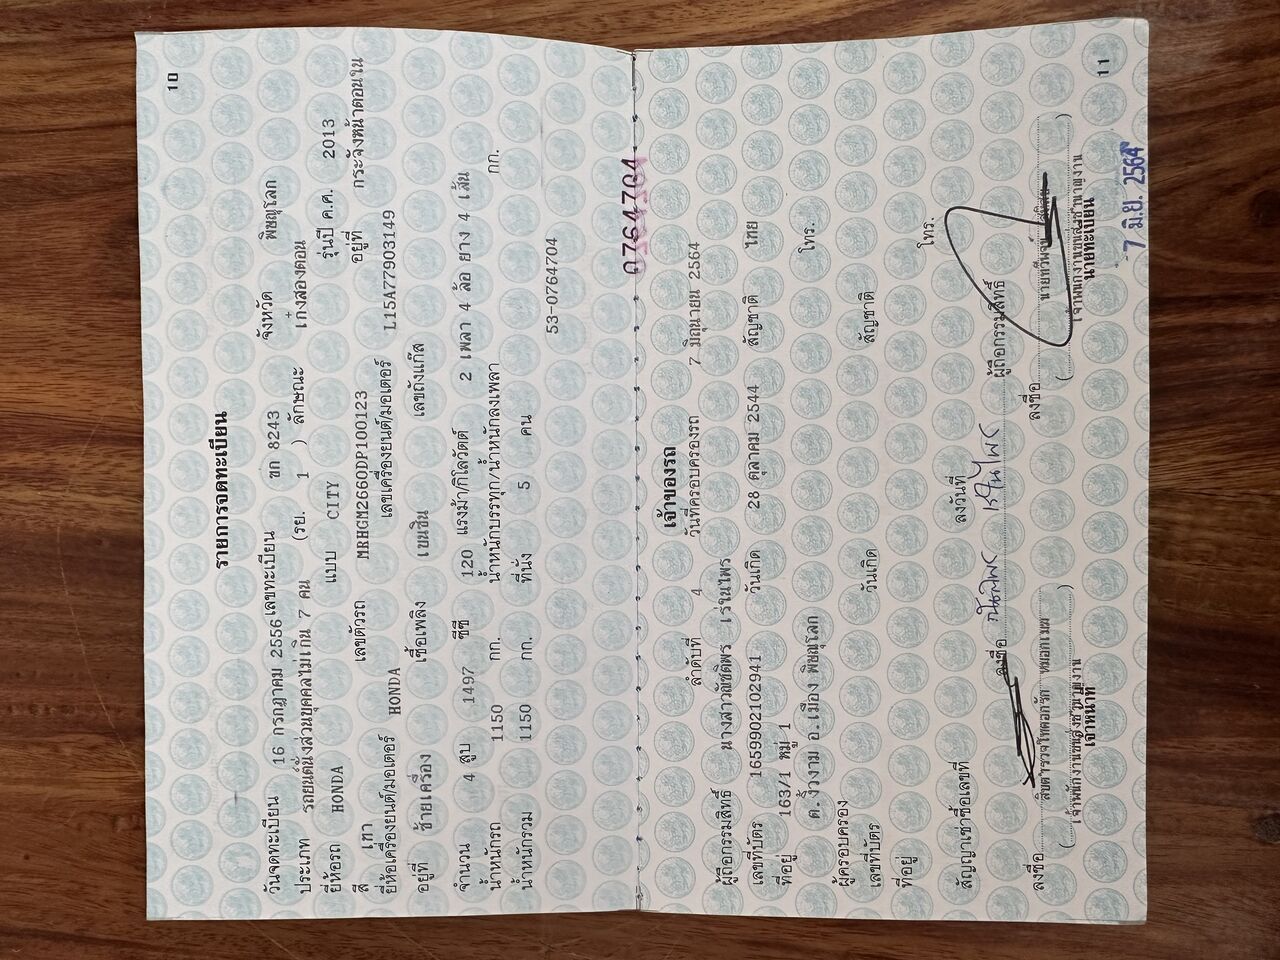 10
รายการจดทะเบียน
วันจดทะเบียน 16 กรกฎาคม 2556 เลขทะเบียน ขก 8243 จังหวัด พิษณุโลก
ประเภท รถยนต์นั่งส่วนบุคคลไม่เกิน 7 คน (รย. 1 ) ลักษณะ เก๋งสองตอน
ยี่ห้อรถ HONDA แบบ CITY รุ่นปี ค.ศ. 2013
สี เทา เลขตัวรถ MRHGM2660DP100123 อยู่ที่ กระจังหน้าตอนใน
ยี่ห้อเครื่องยนต์/มอเตอร์ HONDA เลขเครื่องยนต์/มอเตอร์ L15A77903149
อยู่ที่ ซ้ายเครื่อง เชื้อเพลิง เบนซิน เลขถังแก๊ส
จำนวน 4 สูบ 1497 ซีซี 120 แรงม้า/กิโลวัตต์ 2 เพลา 4 ล้อ ยาง 4 เส้น
น้ำหนักรถ 1150 กก. น้ำหนักบรรทุก/น้ำหนักลงเพลา กก.
น้ำหนักรวม 1150 กก. ที่นั่ง 5 คน
53-0764704
0764704
เจ้าของรถ
ลำดับที่ 4 วันที่ครอบครองรถ 7 มิถุนายน 2564
ผู้ถือกรรมสิทธิ์ นางสาวณัชติพร เรไนไพร
เลขที่บัตร 1659902102941 วันเกิด 28 ตุลาคม 2544 สัญชาติ ไทย
ที่อยู่ 163/1 หมู่ 1
ต.งิ้วงาม อ.เมือง พิษณุโลก โทร.
ผู้ครอบครอง
เลขที่บัตร วันเกิด สัญชาติ
ที่อยู่
โทร.
สัญญาเช่าซื้อเลขที่ ลงวันที่
ลงชื่อ ผู้ถือกรรมสิทธิ์
ลงชื่อ ลงชื่อ
( สิบตำรวจโทเอกรัก ) ( )
เจ้าพนักงานขนส่งชำนาญงาน เจ้าพนักงานขนส่งชำนาญงาน
เจ้าหน้าที่ นายทะเบียน
-7 มิ.ย. 2564
11